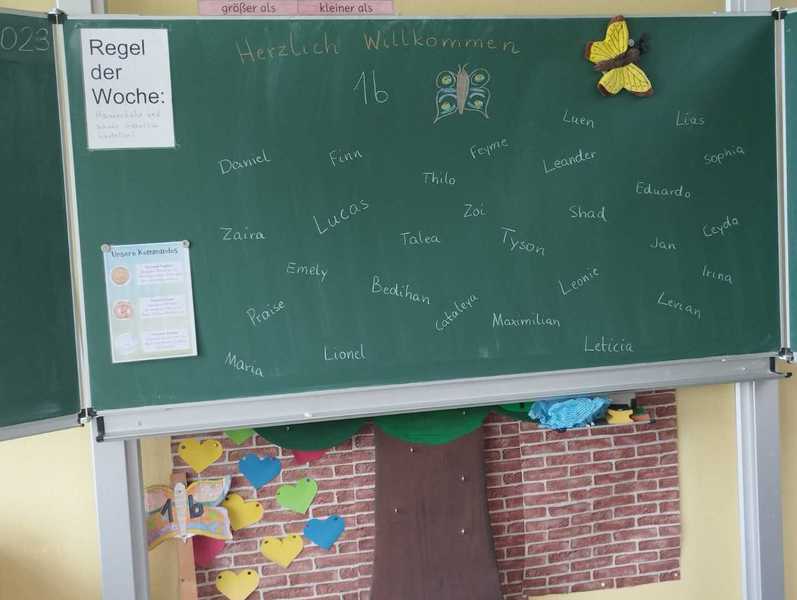 größer als
kleiner als
023
Regel
der
Woche:
Herzlich Willkommen
1b
Luen
Lias
Daniel
Finn
Feyme
Leander
Sophia
Thilo
Eduardo
Lucas
Zoi
Shad
Zaira
Talea
Tyson
Jan
Ceyda
Emely
Bedihan
Leonie
Irina
Praise
Cataleya
Maximilian
Levian
Maria
Lionel
Leticia
Unsere Kommandos
1b